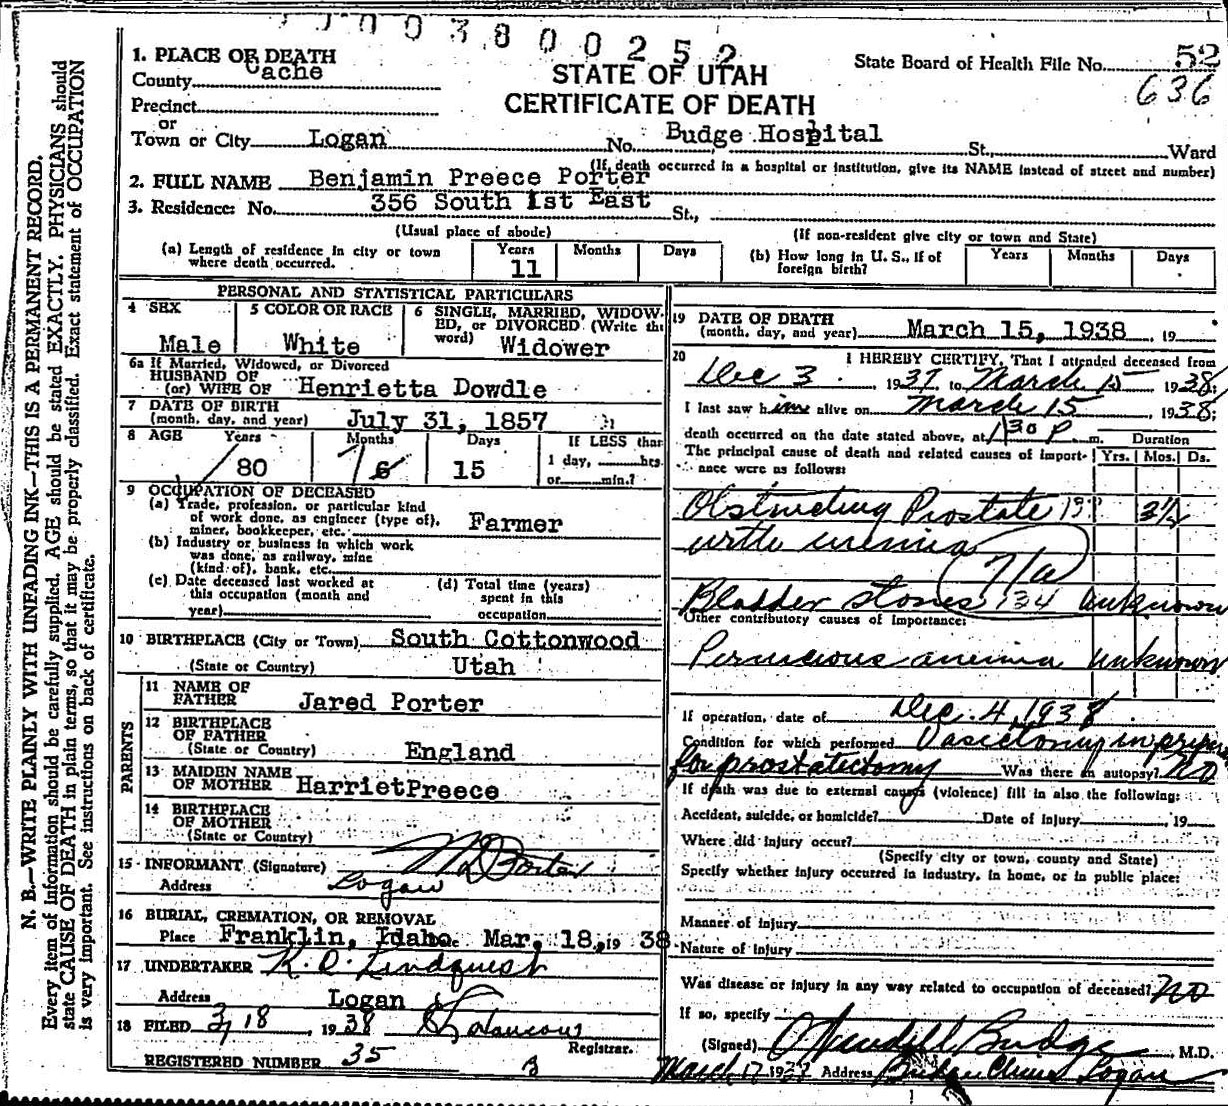 3800252
1. PLACE OF DEATH
County Cache
STATE OF UTAH
CERTIFICATE OF DEATH
State Board of Health File No. 52
636
Precinct
or
Town or City Logan No. Budge Hospital St., Ward
(If death occurred in a hospital or institution, give its NAME instead of street and number)
2. FULL NAME Benjamin Preece Porter
3. Residence: No. 356 South 1st East St.,
(Usual place of abode) (If non-resident give city or town and State)
(a) Length of residence in city or town where death occurred. Years 11 Months Days
(b) How long in U. S., if of foreign birth? Years Months Days
PERSONAL AND STATISTICAL PARTICULARS
4 SEX Male
5 COLOR OR RACE White
6 SINGLE, MARRIED, WIDOWED, or DIVORCED (Write the word) Widower
6a If Married, Widowed, or Divorced
HUSBAND OF
(or) WIFE OF Henrietta Dowdle
7 DATE OF BIRTH
(month, day, and year) July 31, 1857
8 AGE Years 80 Months 6 Days 15 If LESS than 1 day, hrs. or min.?
9 OCCUPATION OF DECEASED
(a) Trade, profession, or particular kind of work done, as engineer (type of), miner, bookkeeper, etc. Farmer
(b) Industry or business in which work was done, as railway, mine (kind of), bank, etc.
(c) Date deceased last worked at this occupation (month and year)
(d) Total time (years) spent in this occupation
10 BIRTHPLACE (City or Town) South Cottonwood
(State or Country) Utah
PARENTS
11 NAME OF FATHER Jared Porter
12 BIRTHPLACE OF FATHER
(State or Country) England
13 MAIDEN NAME OF MOTHER Harriet Preece
14 BIRTHPLACE OF MOTHER
(State or Country)
15 INFORMANT (Signature) Porter
Address Logan
16 BURIAL, CREMATION, OR REMOVAL
Place Franklin, Idaho. Mar. 18, 19 38.
17 UNDERTAKER Lindquist
Address Logan
18 FILED 3/18, 1938
Registrar.
REGISTERED NUMBER 35
19 DATE OF DEATH
(month, day, and year) March 15, 1938, 19
20 I HEREBY CERTIFY, That I attended deceased from
Dec 3, 1937 to March 15 1938;
I last saw him alive on March 15, 1938;
death occurred on the date stated above, at 1:30 P m. Duration
The principal cause of death and related causes of importance were as follows: Yrs. Mos. Ds.
Obstructing Prostate 3½
with uremia
Bladder stones 134 unknown
Other contributory causes of importance:
Pernicious anemia unknown
If operation, date of Dec. 4, 1938
Condition for which performed Vasectomy in
for prostatectomy Was there an autopsy? No
If death was due to external causes (violence) fill in also the following:
Accident, suicide, or homicide? Date of injury , 19
Where did injury occur?
(Specify city or town, county and State)
Specify whether injury occurred in industry, in home, or in public place:
Manner of injury
Nature of injury
Was disease or injury in any way related to occupation of deceased? No
If so, specify
(Signed) Budge, M.D.
March 17 1937 Address Budge Clinic Logan
N. B.—WRITE PLAINLY WITH UNFADING INK—THIS IS A PERMANENT RECORD.
Every item of information should be carefully supplied. AGE should be stated EXACTLY. PHYSICIANS should
state CAUSE OF DEATH in plain terms, so that it may be properly classified. Exact statement of OCCUPATION
is very important. See instructions on back of certificate.